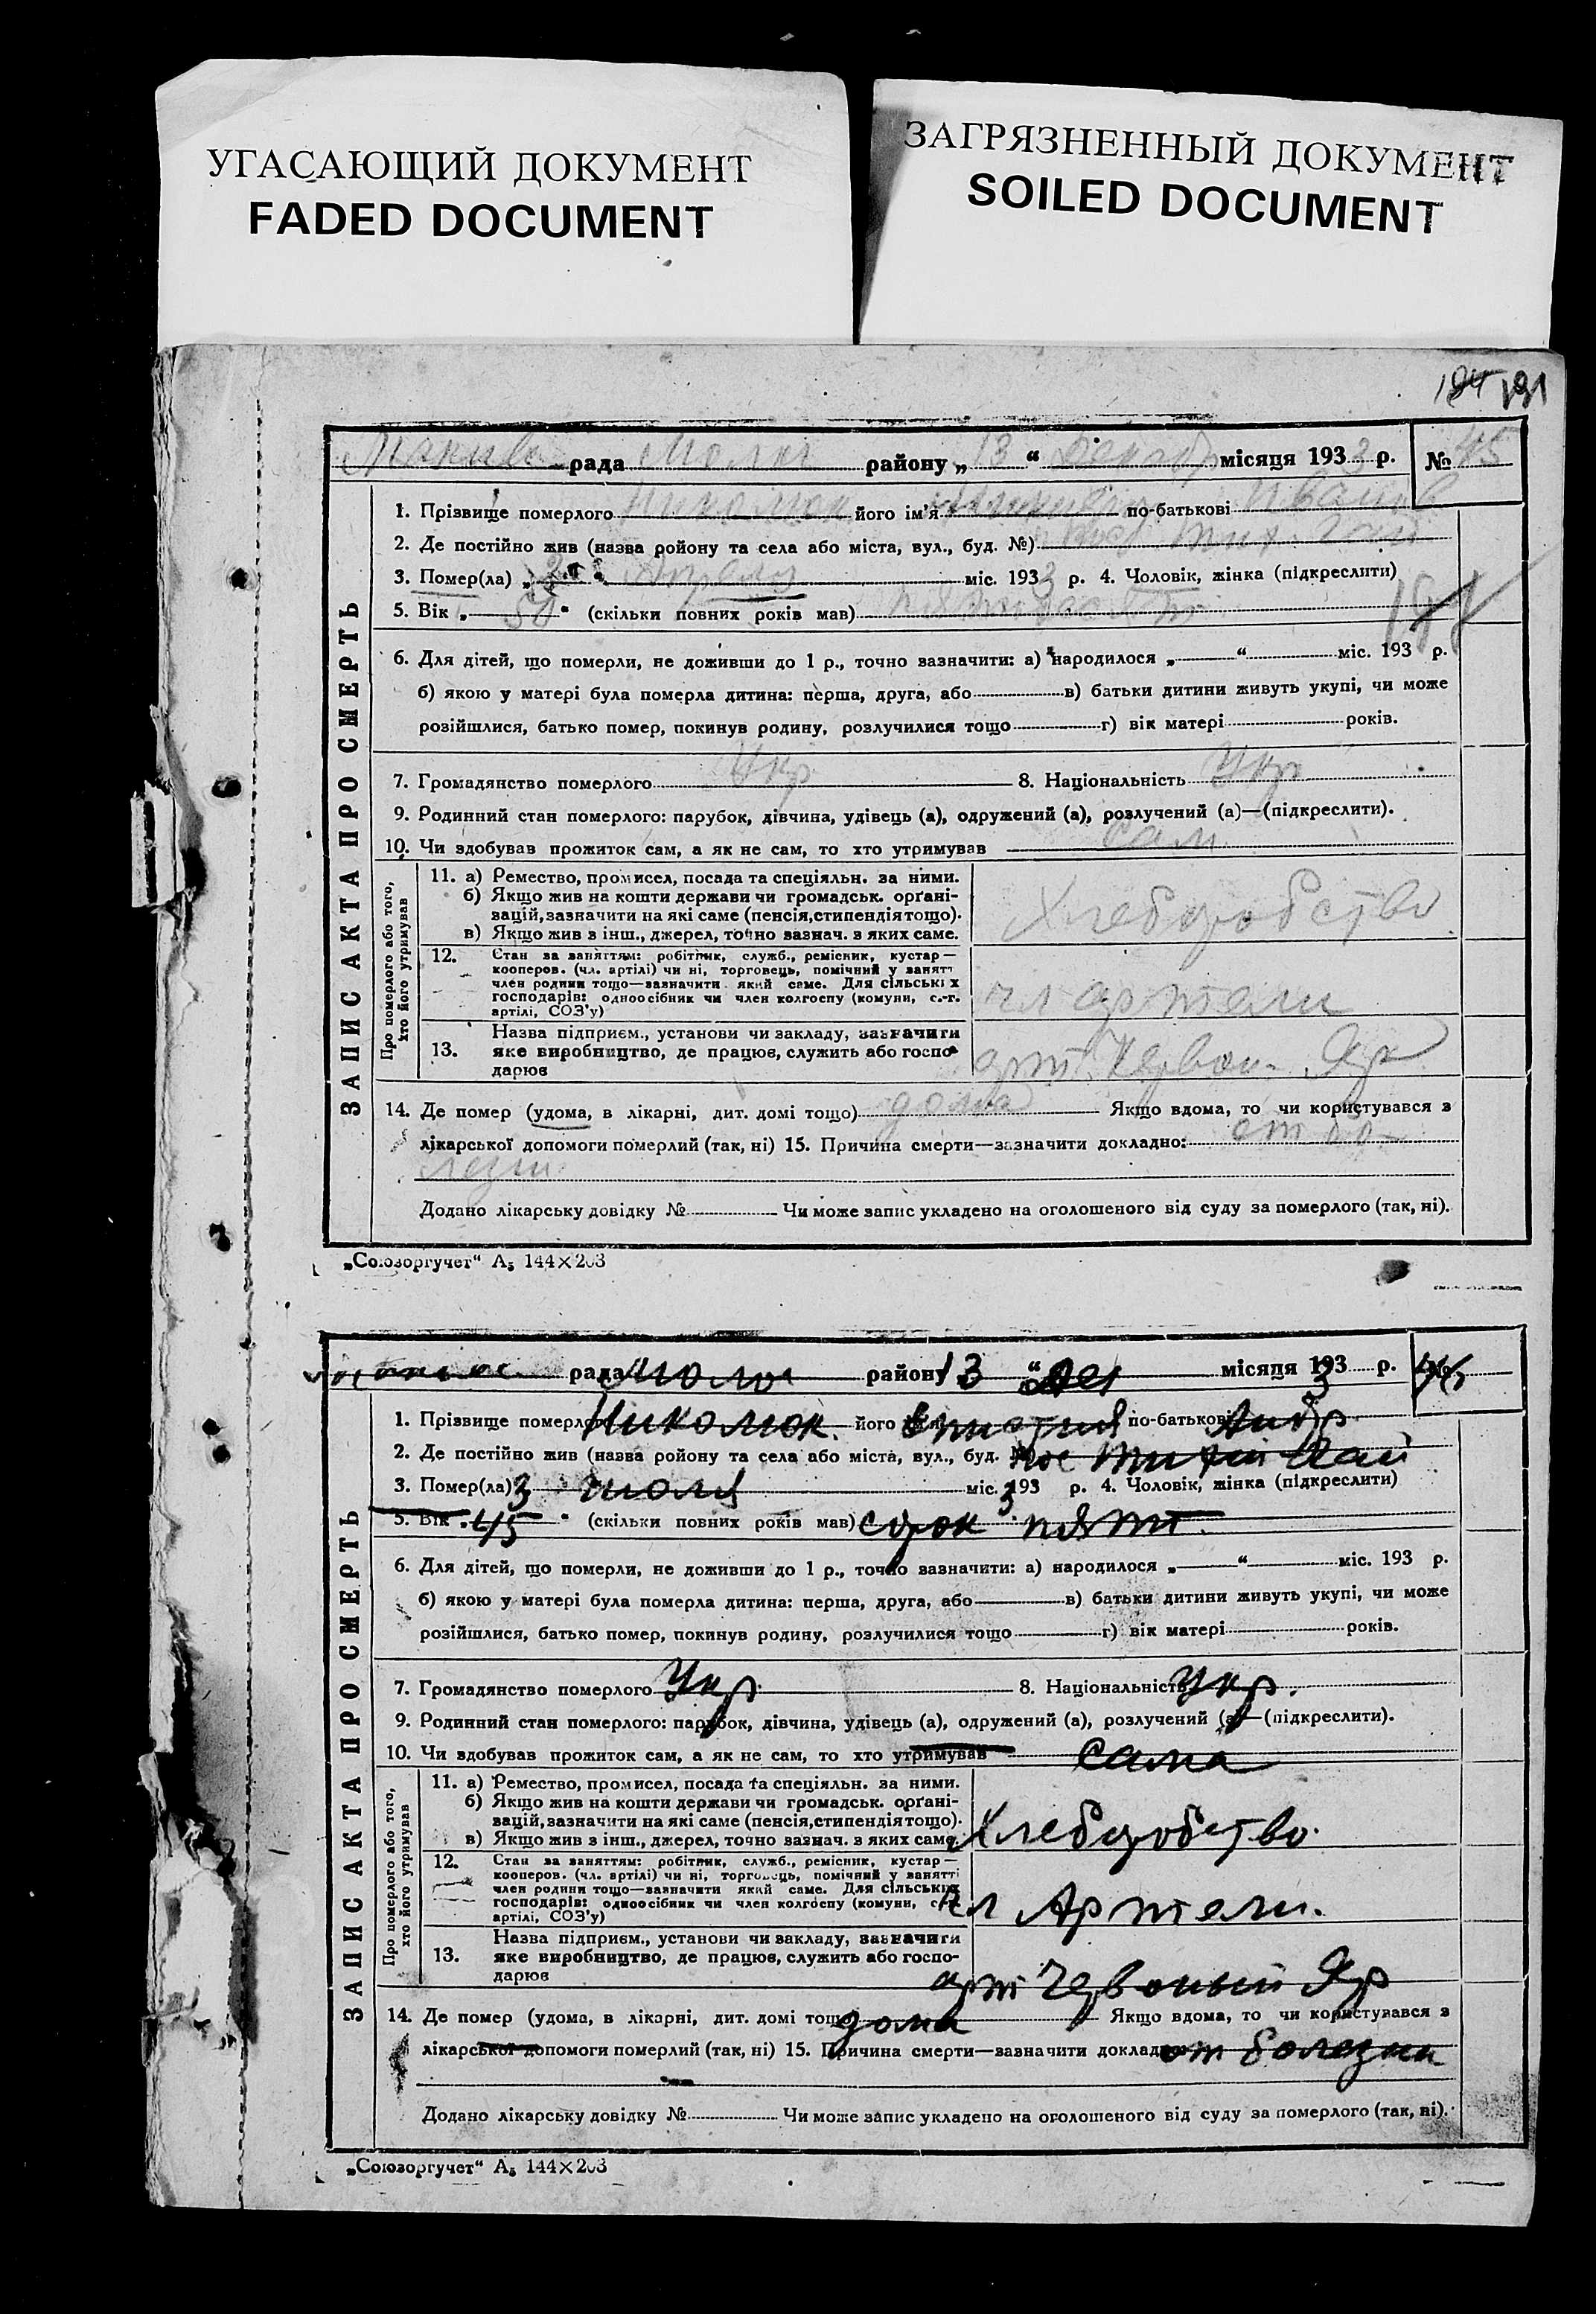 УГАСАЮЩИЙ ДОКУМЕНТ
FADED DOCUMENT
ЗАГРЯЗНЕННЫЙ ДОКУМЕНТ
SOILED DOCUMENT
191
рада Молоч району „ 13 “ Декабр місяця 1933 р. № 45
ЗАПИС АКТА ПРО СМЕРТЬ
1. Прізвище померлого Николюк його ім'я по-батькові Иванов
2. Де постійно жив (назва ройону та села або міста, вул., буд. №) пос Тих. Гай
3. Помер(ла) „ Апреля міс. 1933 р. 4. Чоловік, жінка (підкреслити)
5. Вік „ 50 “ (скільки повних років мав) пятдесят
6. Для дітей, що померли, не доживши до 1 р., точно зазначити: а) народилося „ “ міс. 193 р.
б) якою у матері була померла дитина: перша, друга, або в) батьки дитини живуть укупі, чи може
розійшлися, батько помер, покинув родину, розлучилися тощо г) вік матері років.
7. Громадянство померлого Укр 8. Національність Укр
9. Родинний стан померлого: парубок, дівчина, удівець (а), одружений (а), розлучений (а)—(підкреслити).
10. Чи здобував прожиток сам, а як не сам, то хто утримував сам
Про померлого або того, хто його утримував
11. а) Ремество, промисел, посада та спеціяльн. за ними.
б) Якщо жив на кошти держави чи громадськ. орґані-
зацій, зазначити на які саме (пенсія, стипендія тощо).
в) Якщо жив з інш., джерел, точно зазнач. з яких саме.
Хлеборобство
12. Стан за заняттям: робітник, служб., ремісник, кустар—
кооперов. (чл. артілі) чи ні, торговець, помічний у занятт
член родини тощо—зазначити який саме. Для сільських
господарів: одноосібник чи член колгоспу (комуни, с.-г.
артілі, СОЗ'у)
чл артели
13. Назва підприєм., установи чи закладу, зазначити
яке виробництво, де працює, служить або госпо-
дарює
арт. Червон. Яр
14. Де помер (удома, в лікарні, дит. домі тощо) дома Якщо вдома, то чи користувався з
лікарської допомоги померлий (так, ні) 15. Причина смерти—зазначити докладно: от бо-
лезни
Додано лікарську довідку № Чи може запис укладено на оголошеного від суду за померлого (так, ні).
„Союзоргучет“ А5 144×203
рада Молоч району 13 “ Дек місяця 1933 р. №
ЗАПИС АКТА ПРО СМЕРТЬ
1. Прізвище померлого Николюк. його ім'я по-батькові Андр
2. Де постійно жив (назва ройону та села або міста, вул., буд. № пос Тихий Гай
3. Помер(ла) 3 июля міс. 1933 р. 4. Чоловік, жінка (підкреслити)
5. Вік „ 45 “ (скільки повних років мав) сорок пять.
6. Для дітей, що померли, не доживши до 1 р., точно зазначити: а) народилося „ “ міс. 193 р.
б) якою у матері була померла дитина: перша, друга, або в) батьки дитини живуть укупі, чи може
розійшлися, батько помер, покинув родину, розлучилися тощо г) вік матері років.
7. Громадянство померлого Укр 8. Національність Укр.
9. Родинний стан померлого: парубок, дівчина, удівець (а), одружений (а), розлучений (а)—(підкреслити).
10. Чи здобував прожиток сам, а як не сам, то хто утримував сама
Про померлого або того, хто його утримував
11. а) Ремество, промисел, посада та спеціяльн. за ними.
б) Якщо жив на кошти держави чи громадськ. орґані-
зацій, зазначити на які саме (пенсія, стипендія тощо).
в) Якщо жив з інш., джерел, точно зазнач. з яких саме.
Хлеборобство.
12. Стан за заняттям: робітник, служб., ремісник, кустар—
кооперов. (чл. артілі) чи ні, торговець, помічний у занятті
член родини тощо—зазначити який саме. Для сільських
господарів: одноосібник чи член колгоспу (комуни, с.-г.
артілі, СОЗ'у)
чл Артели.
13. Назва підприєм., установи чи закладу, зазначити
яке виробництво, де працює, служить або госпо-
дарює
арт Червоный Яр
14. Де помер (удома, в лікарні, дит. домі тощо) дома Якщо вдома, то чи користувався з
лікарської допомоги померлий (так, ні) 15. Причина смерти—зазначити докладно от болезни
Додано лікарську довідку № Чи може запис укладено на оголошеного від суду за померлого (так, ні).
„Союзоргучет“ А5 144×203